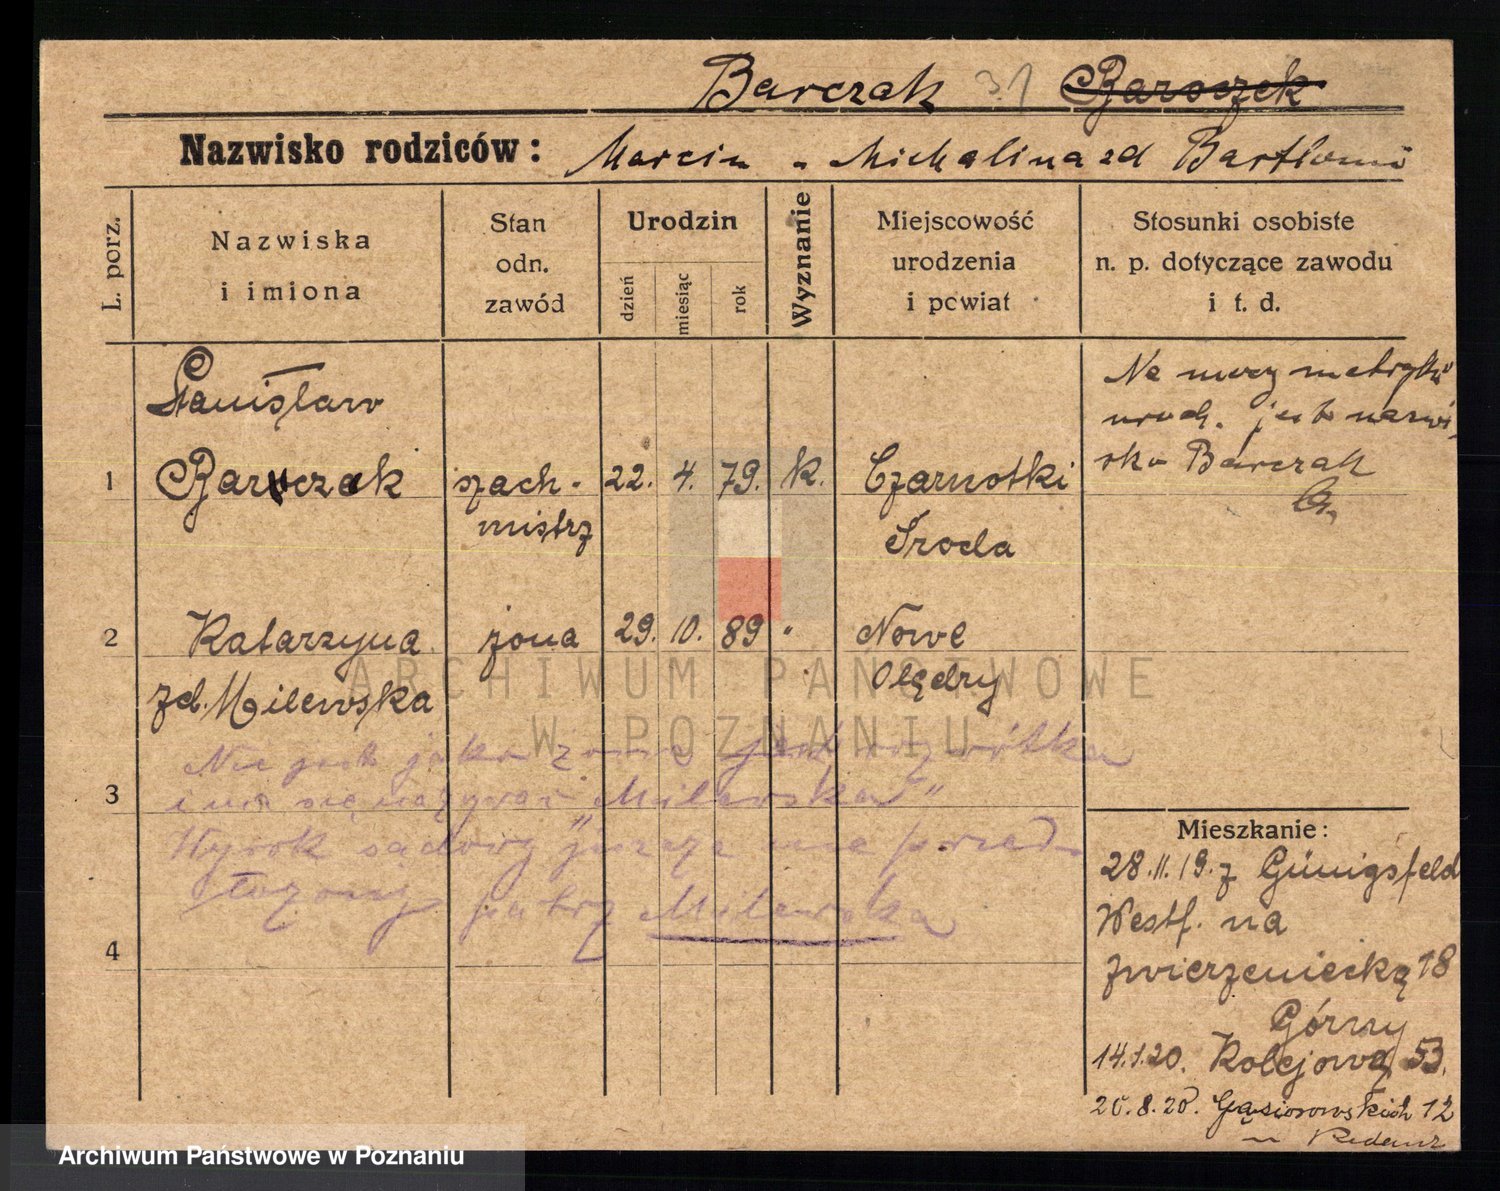 Barczak 31 Baroczek
Nazwisko rodziców: Marcin - Michalina zd Bartłomi
L. porz.
Nazwiska
i imiona
Stan
odn.
zawód
Urodzin
dzień
miesiąc
rok
Wyznanie
Miejscowość
urodzenia
i powiat
Stosunki osobiste
n. p. dotyczące zawodu
i t. d.
Stanisław
1 Barczak szach- 22. 4. 79. k. Czarnotki
mistrz Środa
Na mocy metryki
urodz. jest nazwi
sko Barczak
2 Katarzyna żona 29. 10. 89 " Nowe
zd. Milewska Olędry
Nie jest jako żona jest rozwódka
3 i ma się nazywać "Milewska"
Wyrok sądowy jeszcze nie przed
łożony patrz Milewska
4
Mieszkanie:
28.11.19. z Günigsfeld
Westf. na
Zwierzeniecką 18
Górny
14.1.20. Kolejową 53.
20.8.20. Gąsiorowskich 12
ARCHIWUM PAŃSTWOWE
W POZNANIU
Archiwum Państwowe w Poznaniu